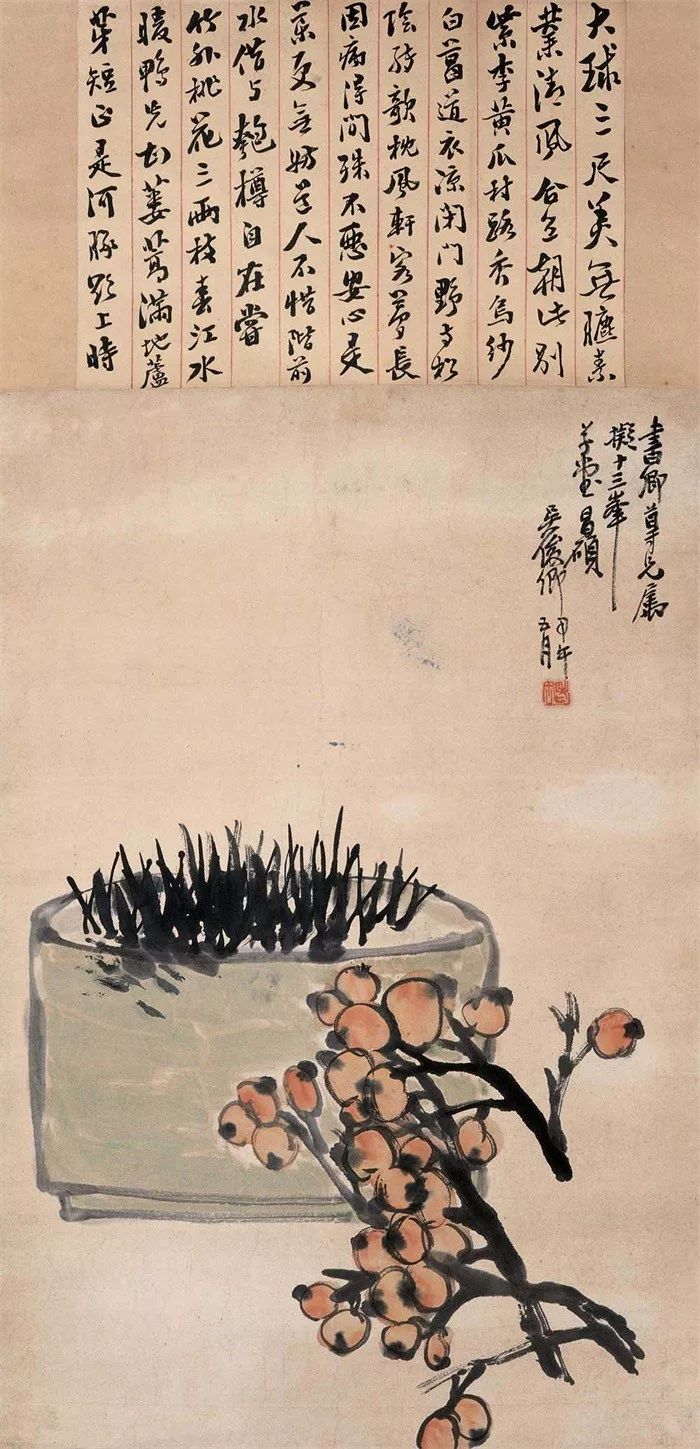 球三尺美無素
葉清風合朝此別
紫李黃瓜村路香烏紗
白葛道衣涼閉門野寺松
陰轉欹枕風軒客夢長
因病得閒殊不惡安心是
藥更無妨道人不惜階前
水借與匏樽自在嘗
竹外桃花三兩枝春江水
暖鴨先知蔞蒿滿地蘆
芽短正是河豚欲上時
書卿尊兄屬
擬十三峯
草堂昌碩
吳俊卿甲午
五月